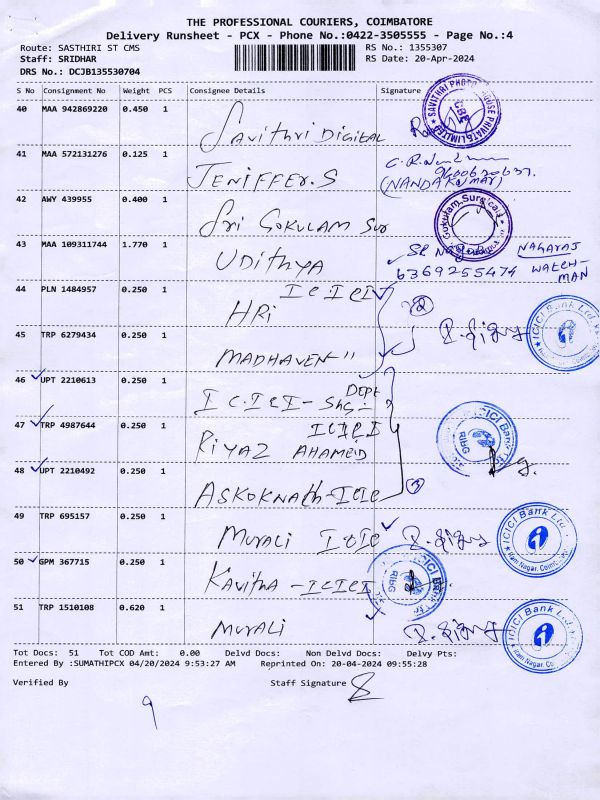 THE PROFESSIONAL COURIERS, COIMBATORE
Delivery Runsheet - PCX - Phone No.:0422-3505555 - Page No.:4
Route: SASTHIRI ST CMS RS No.: 1355307
Staff: SRIDHAR RS Date: 20-Apr-2024
DRS No.: DCJB135530704
S No Consignment No Weight PCS Consignee Details Signature
40 MAA 942869220 0.450 1 Savithri Digital
SAVITHRI PHOTO HOUSE PRIVATE LIMITED CBE
41 MAA 572131276 0.125 1 JENIFFER.S
(NANDAKUMAR)
42 AWY 439955 0.400 1 Sri GOKULAM Sur
Gokulam Surgicals
43 MAA 109311744 1.770 1 UDITHYA
6369255474 NAGARAJ WATCHMAN
44 PLN 1484957 0.250 1 HRI ICICI
45 TRP 6279434 0.250 1 MADHAVEN "
ICICI Bank Ltd.
46 UPT 2210613 0.250 1 ICICI - Dept
47 TRP 4987644 0.250 1 RIYAZ AHAMED ICICI
ICICI Bank Ltd RIBG
48 UPT 2210492 0.250 1 ASKOKNATH-ICIC
49 TRP 695157 0.250 1 MURALI ICIC
ICICI Bank Ltd. Ram Nagar, Coimbatore
50 GPM 367715 0.250 1 KAVITHA - ICICI
ICICI Bank Ltd RIBG
51 TRP 1510108 0.620 1 MURALI
ICICI Bank Ltd. Ram Nagar, Co
Tot Docs: 51 Tot COD Amt: 0.00 Delvd Docs: Non Delvd Docs: Delvy Pts:
Entered By :SUMATHIPCX 04/20/2024 9:53:27 AM Reprinted On: 20-04-2024 09:55:28
Verified By Staff Signature